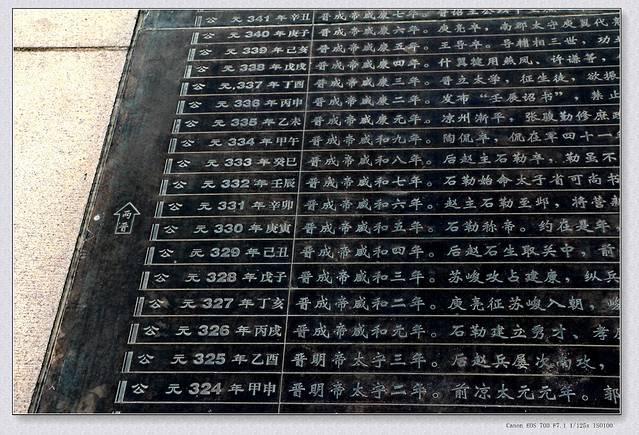 公元341年辛丑 晋成帝咸康七年。
公元340年庚子 晋成帝咸康六年。庾亮卒，南郡太守庾翼代
公元339年己亥 晋成帝咸康五年。王导卒。导辅相三世，功
公元338年戊戌 晋成帝咸康四年。什翼犍用燕凤、许谦等，
公元337年丁酉 晋成帝咸康三年。晋立太学，征生徒，欲振
公元336年丙申 晋成帝咸康二年。发布“壬辰诏书”，禁止
公元335年乙未 晋成帝咸康元年。凉州渐平，张骏勤修庶政
公元334年甲午 晋成帝咸和九年。陶侃卒，侃在军四十一年
公元333年癸巳 晋成帝咸和八年。后赵主石勒卒，勒虽不
公元332年壬辰 晋成帝咸和七年。石勒始命太子省可尚书
公元331年辛卯 晋成帝咸和六年。赵主石勒至邺，将营新
公元330年庚寅 晋成帝咸和五年。石勒称帝。约在是年，
公元329年己丑 晋成帝咸和四年。后赵石生取关中，前
公元328年戊子 晋成帝咸和三年。苏峻攻占建康，纵兵
公元327年丁亥 晋成帝咸和二年。庾亮征苏峻入朝，峻
公元326年丙戌 晋成帝咸和元年。石勒建立秀才、孝
公元325年乙酉 晋明帝太宁三年。后赵兵屡次南攻，
公元324年甲申 晋明帝太宁二年。前凉太元元年。郭
两晋
Canon EOS 70D F7.1 1/125s ISO100